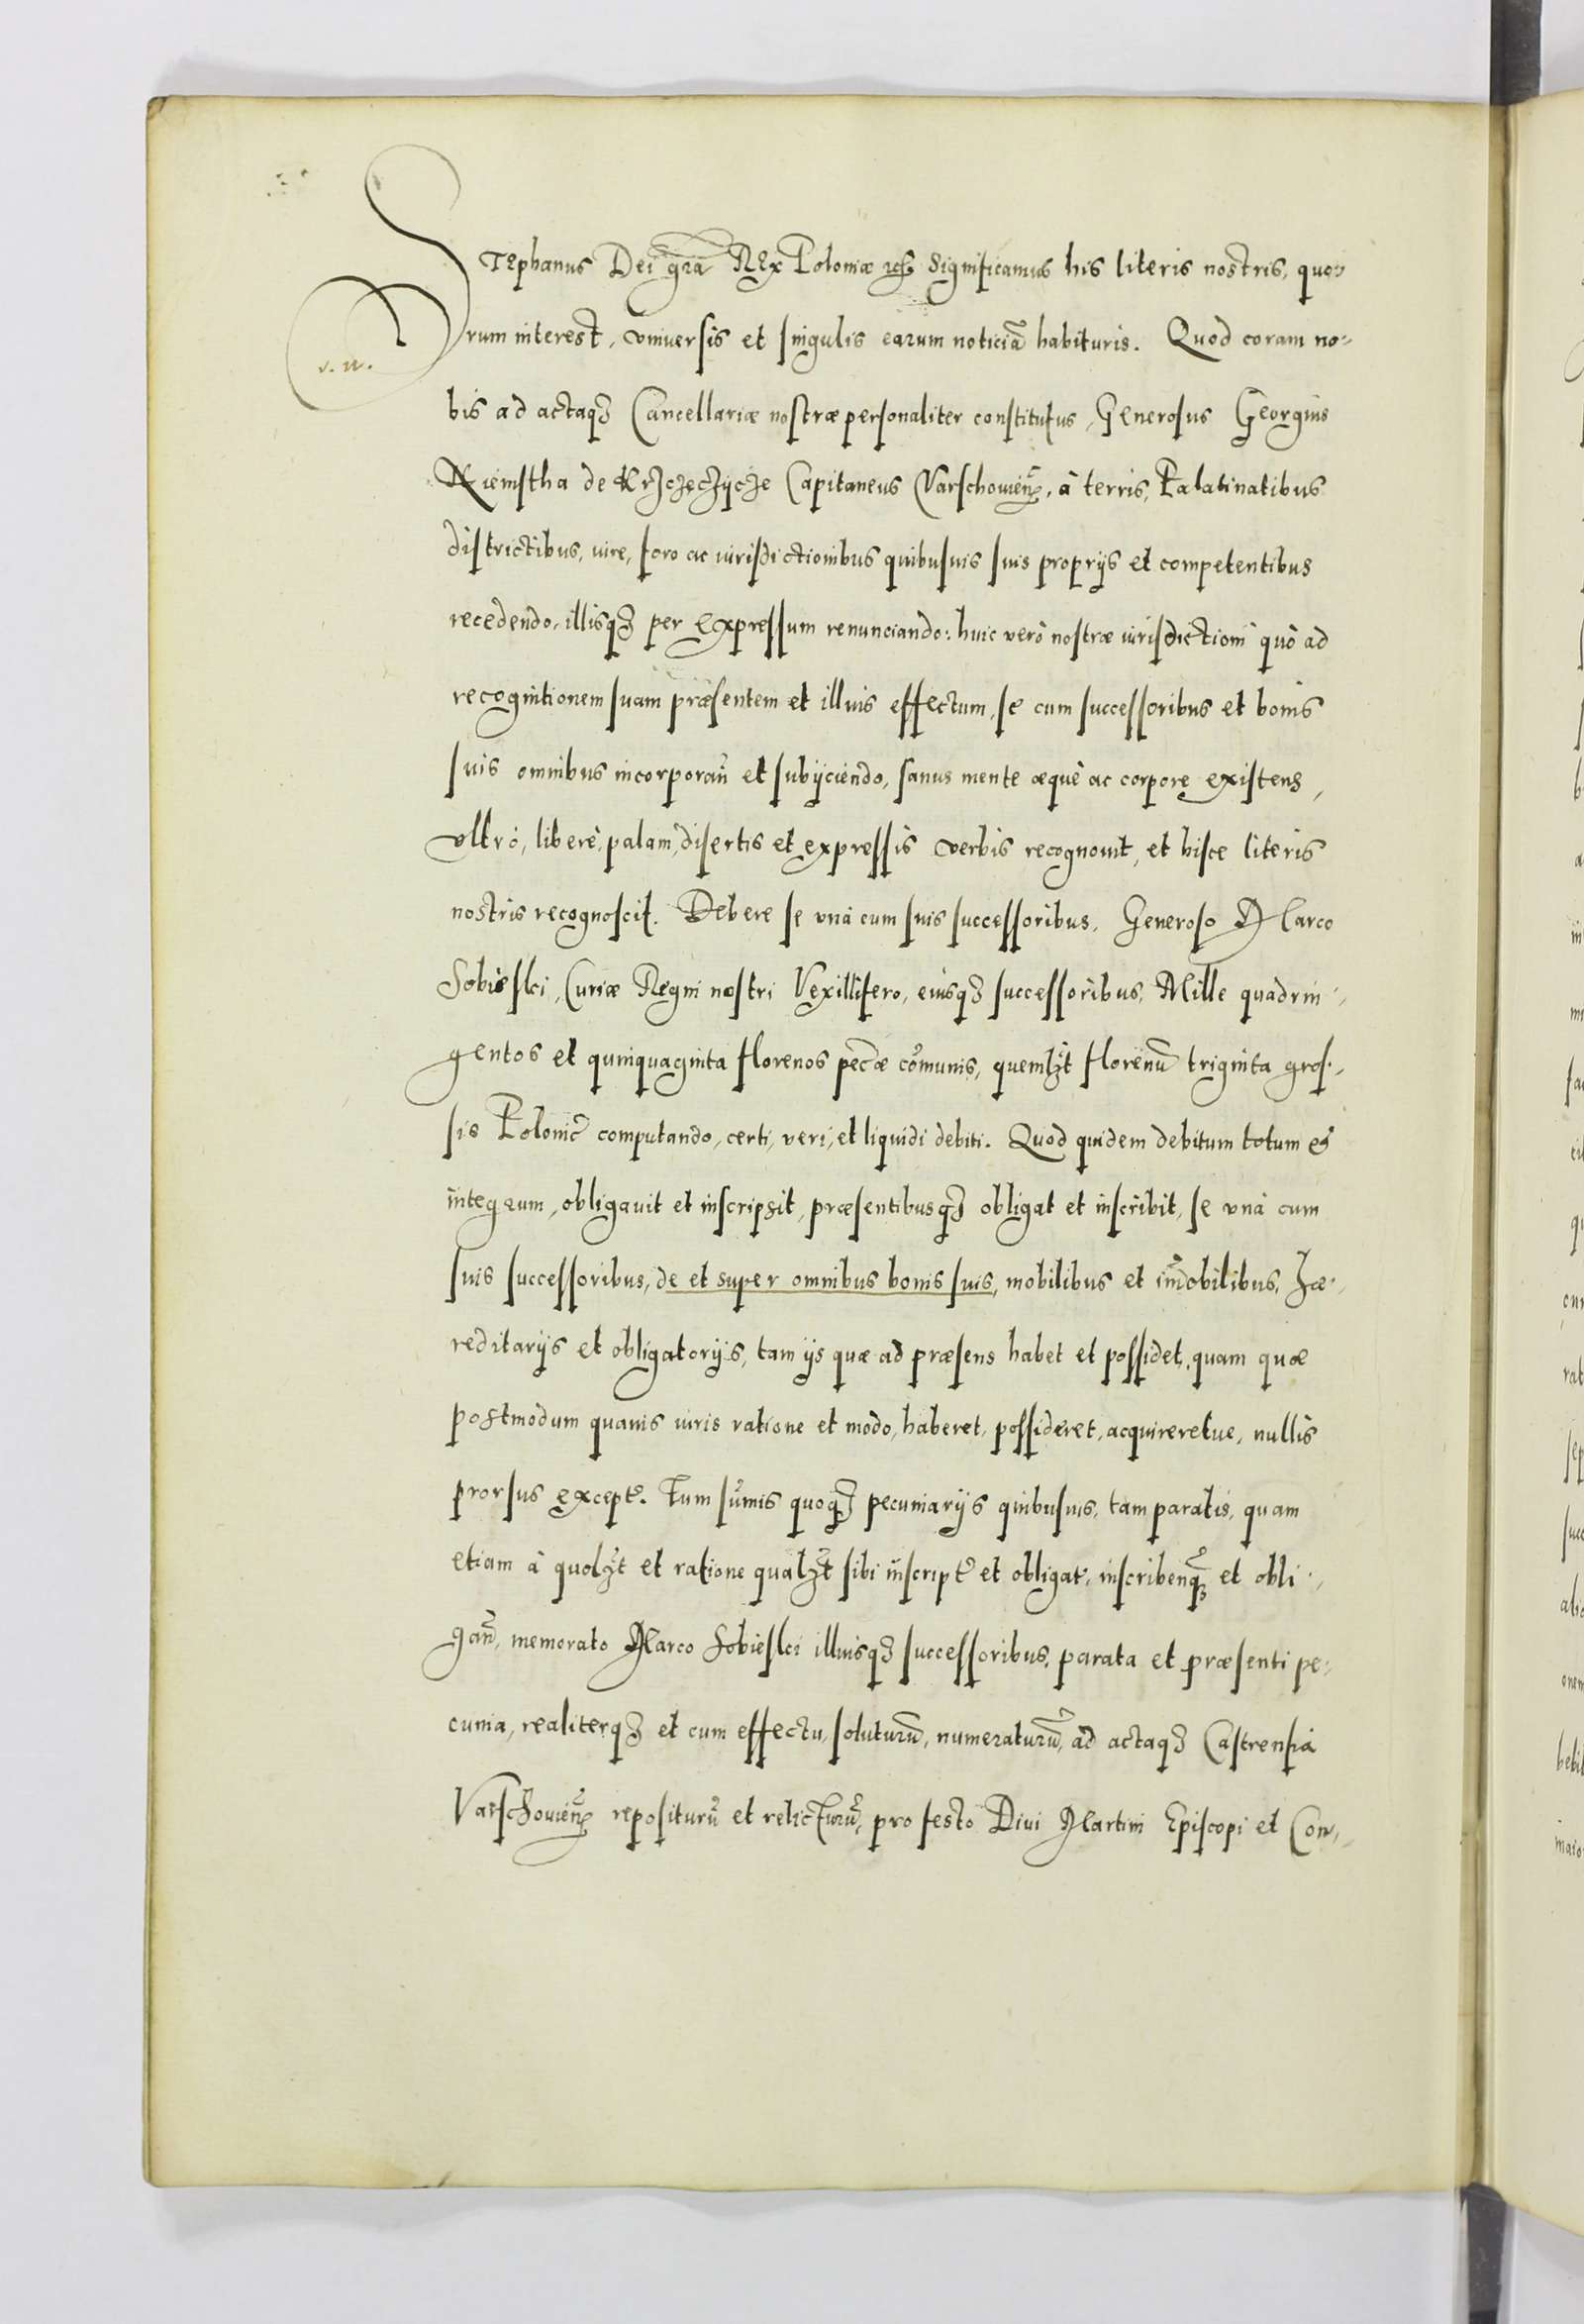 STephanus Dei gra͠ REx Poloniæ etc. Significamus his literis nostris, quo-
rum interest, vniuersis et singulis earum noticia͠ habituris. Quod coram no-
v. w.
bis ad actaq3 Cancellariæ nostræ personaliter constitutus, Generosus Georgius
Niemstha de Krzczeczycze Capitaneus Varschouien̄, à terris, Palatinatibus
districtibus, iure, foro ac iurisdictionibus quibusuis suis proprijs et competentibus
recedendo, illisq3 per expressum renunciando: huic verò nostræ iurisdictioni quò ad
recognitionem suam præsentem et illius effectum, se cum successoribus et bonis
suis omnibus incorporan̄ et subijciendo, sanus mente æquè ac corpore existens,
vltrò, liberè, palam, disertis et expressis verbis recognouit, et hisce literis
nostris recognoscit. Debere se vnà cum suis successoribus, Generoso Marco
Sobieski, Curiæ Regni nostri Vexillifero, eiusq3 successoribus, Mille quadrin-
gentos et quinquaginta florenos pec̄æ co͠munis, quemlzt florenu͠ triginta gros-
sis Polonic̄ computando, certi, veri, et liquidi debiti. Quod quidem debitum totum et
integrum, obligauit et inscripsit, præsentibusq3 obligat et inscribit, se vnà cum
suis successoribus, de et super omnibus bonis suis, mobilibus et im̄obilibus, hæ-
reditarijs et obligatorijs, tam ijs quæ ad præsens habet et possidet, quam quæ
postmodum quauis iuris ratione et modo, haberet, possideret, acquireretue, nullis
prorsus except̄. Tum su͠mis quoq3 pecuniarijs quibusuis, tam paratis, quam
etiam à quolzt et ratione qualzt sibi inscript̄ et obligat̄, inscribenq3 et obli-
gan̄, memorato Marco Sobieski illiusq3 successoribus, parata et præsenti pe-
cunia, realiterq3 et cum effectu, soluturu͠, numeraturu͠, ad actaq3 Castrensia
Varschouien̄ repositurū et relicturū, pro festo Diui Martini Episcopi et Con-